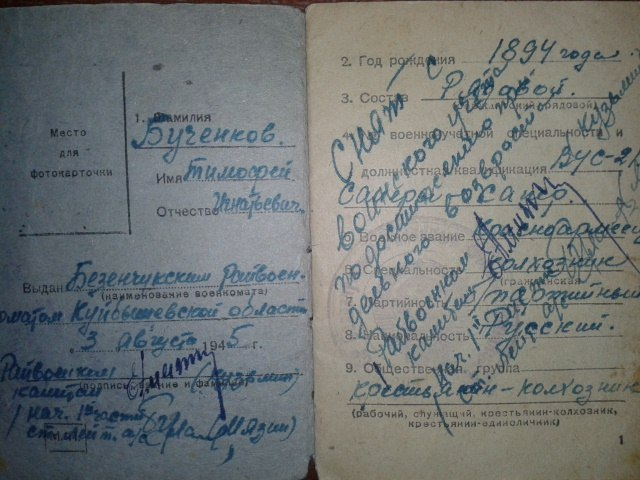 Место
для
фотокарточки
1. Фамилия
Бученков.
Имя Тимофей
Отчество Игнатьевич.
Выдан Безенчукским Райвоен-
(наименование военкомата)
коматом Куйбышевской области
„3 августа 1945 г.
Райвоенком
(подпись, звание и фамилия)
капитан (Кузьмин)
нач. 1 части
ст. лейт. а/с
2. Год рождения 1894 года
3. Состав Рядовой.
4. № военноучетной специальности и
должностная квалификация ВУС-21
Сапер
5. Военное звание Красноармеец
6. Специальность колхозник
(гражданская)
7. Партийность б/партийный
8. Национальность Русский.
9. Общественная группа
крестьянин-колхозник
(рабочий, служащий, крестьянин-колхозник,
крестьянин-единоличник)
1
Снят с
воинского учета
по достижению пре-
дельного возраста
Райвоенком
капитан Кузьмин
нач. 1й части